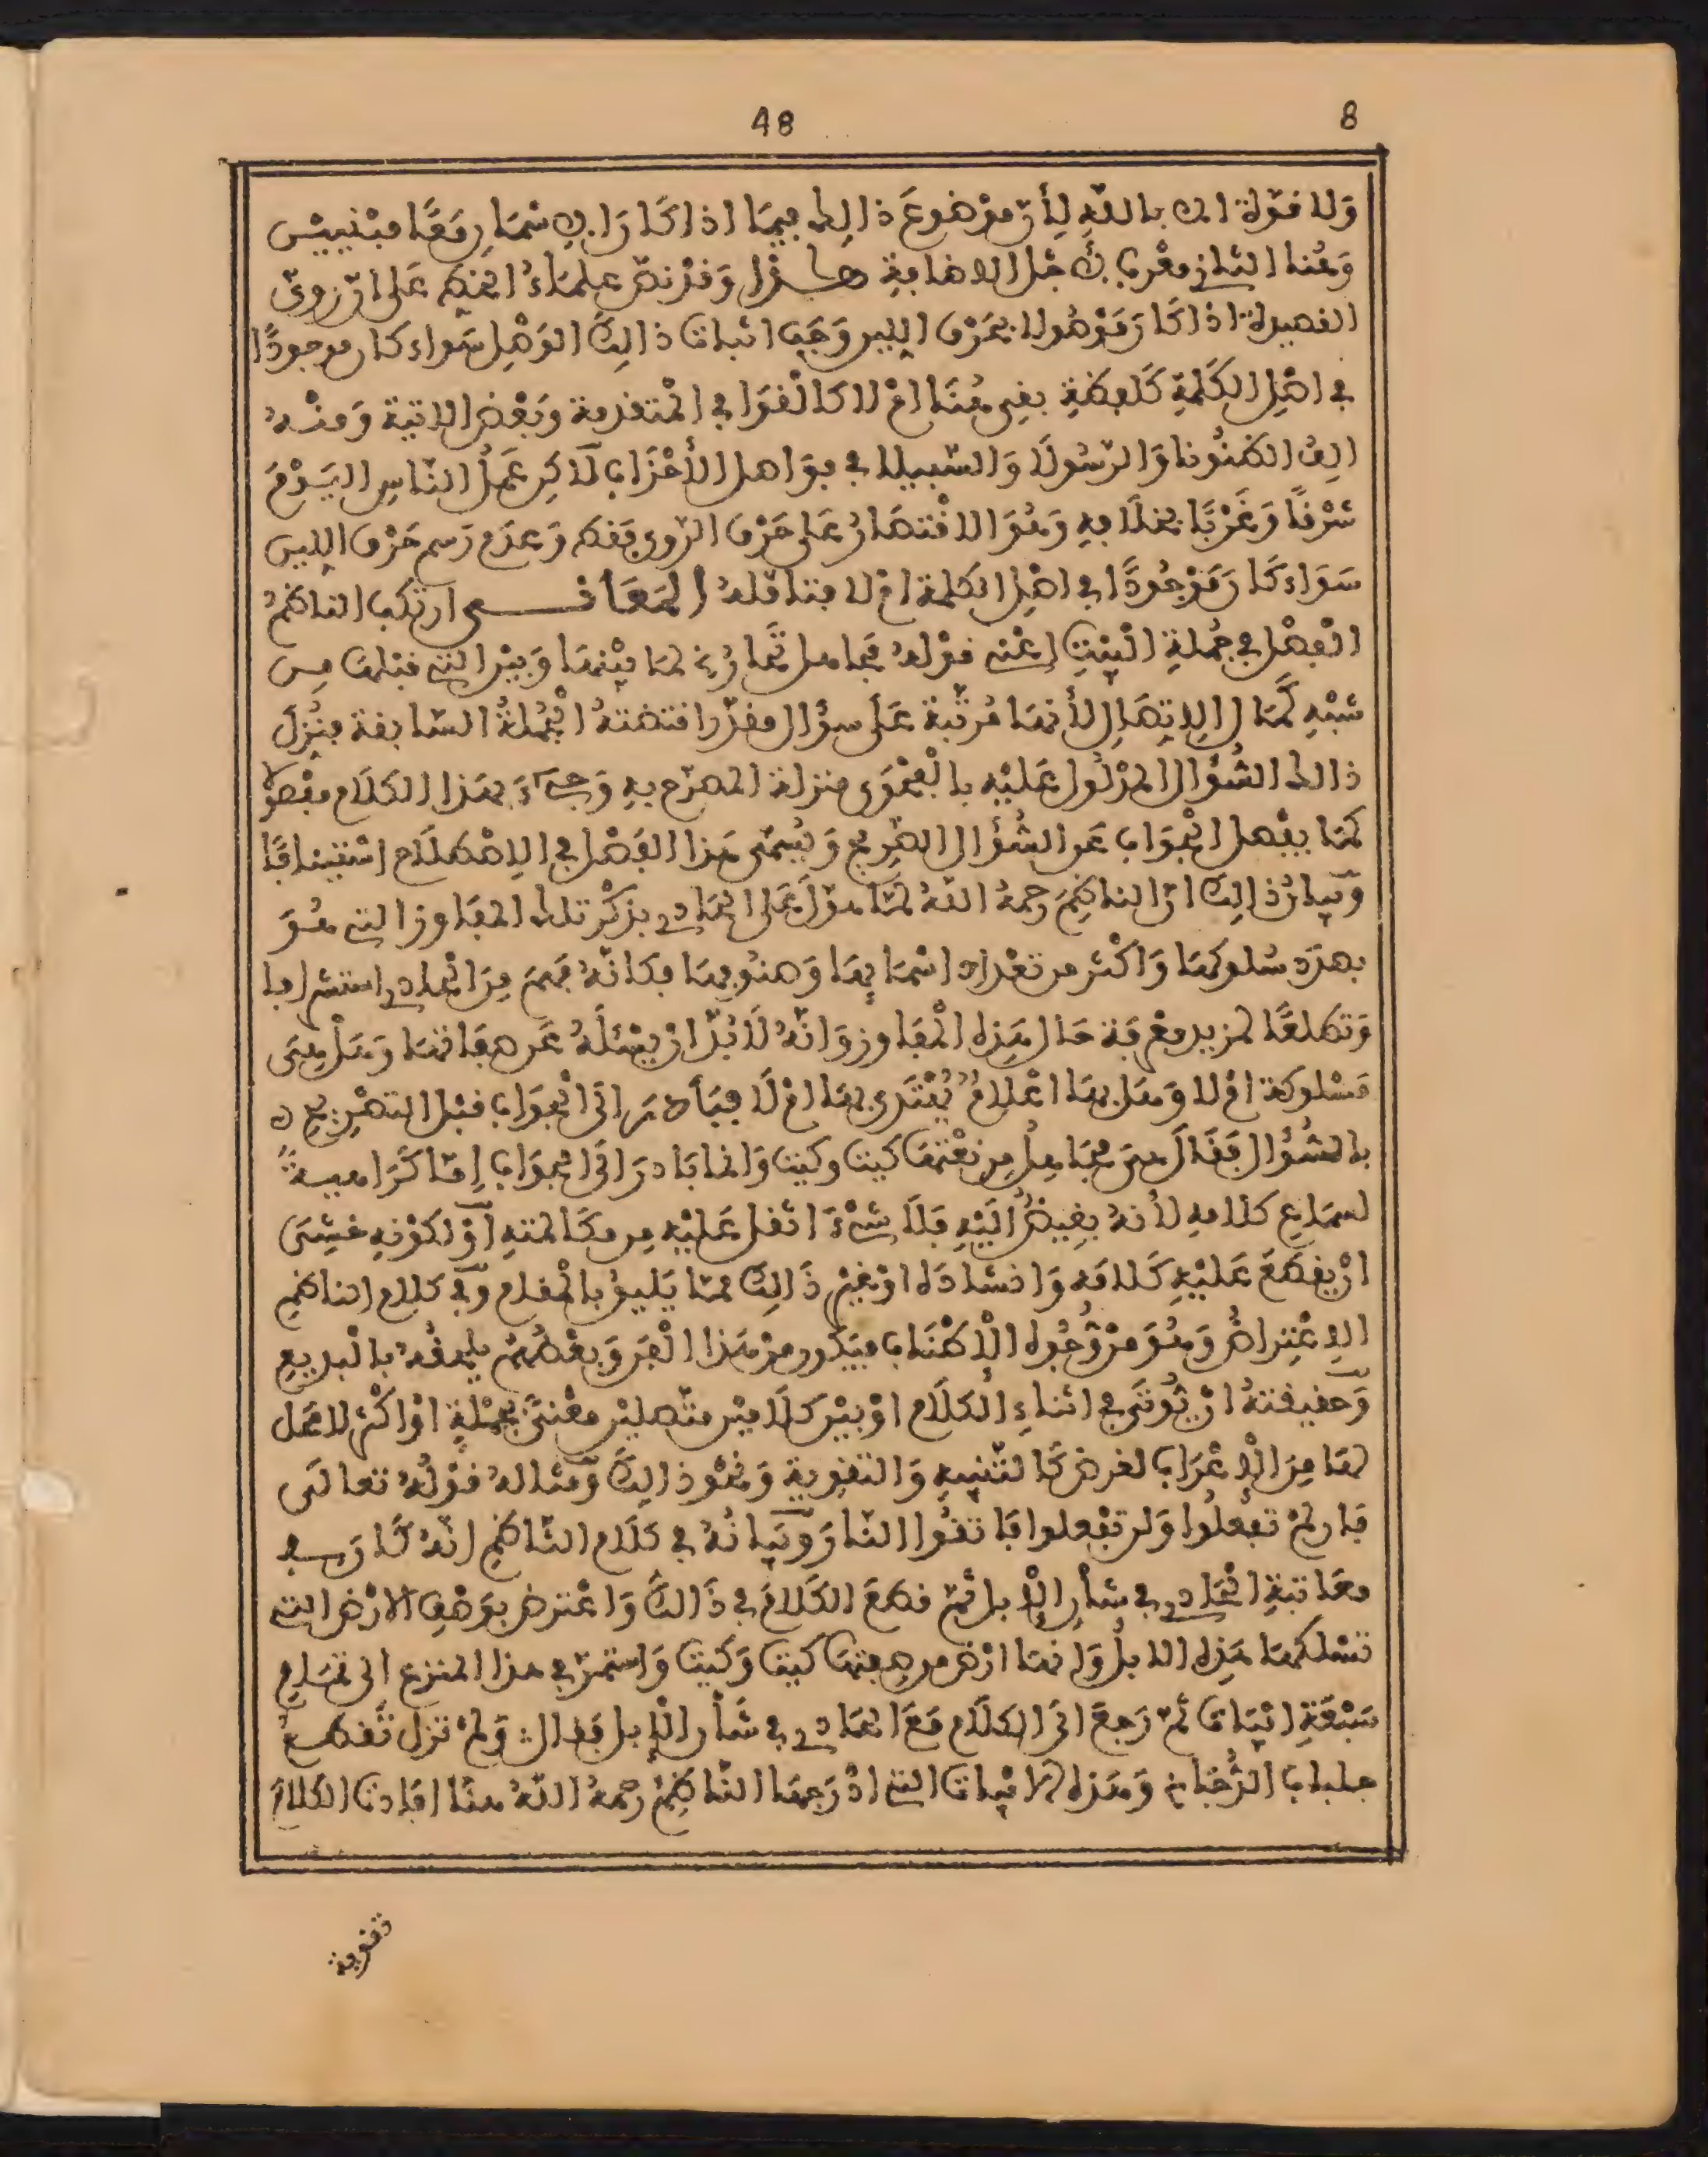 8
48
وَلا قوّة الا بالله لِأنّ موْضوعَ ذالِك فيمَا اذا كَانَ الاِسْمَانِ مَعًا مبْنييْن
وَهُنا الثاني معْرب لأجل الاضافة هـــذا وَقدْ نصّ علمَاءُ الخط عَلى انّ رويّ
القصيدة اذا كانَ مَوْصُولا بحَرْف اللين وَجَبَ اثبات ذالِكَ الوَصْلِ سَواء كان موجودًا
في اصْلِ الكَلمَةِ كَلفظةِ بقى هُنَا امْ لا كالْقوَافي المتقدمة وَبَعْض الاتية وَمنْه
الِف الظنُونا وَالرّسُولَا وَالسّبيلا في فوَاصل الأحْزَاب لَاكِن عَمَلُ النّاسِ اليَوْمَ
شرْقًا وَغَرْبًا بخلَافِه وَهُوَ الاقْتصَارُ عَلى حَرْف الرّوي فَقط وَعدَم رَسم حَرْف اللين
سَوَاء كانَ مَوْجُودًا في اصْلِ الكلمة امْ لا فتامّله المَعَانــــي ارتكب الناظمُ
الْفصْل في جُملةِ الْبيْتِ اعْني قوْله مجاهل تحارُ لمَا بيْنهَا وَبيْن التي قبْلهَا مِن
شبْهِ كَمَال الاِتصَالِ لأنهَا مُرتّبة عَلى سؤال مقدّر اقتضتهُ الْجُملةُ السّابقة فنُزِلَ
ذالك السُّؤال المدْلُول عَليْهِ بالْفحْوَى منزلة المصرّح به وَجيءَ بهَذا الكَلَام مفْصولا
كمَا يفْصل الْجوَاب عَن السُّؤال الصّرِيح وَيُسمّى هَذا الفَصْل في الاِصْطلَاح اسْتينافًا
وَبيانُ ذالِكَ انّ الناظِمَ رَحمهُ اللهُ لمّا هوّلَ عَلى الحَادي بذكْر تلك المفاوز التي هُوَ
بصدَد سُلوكهَا وَاكْثر من تعْداد اسْمَائهَا وَصنُوفهَا فكانّهُ فَهمَ مِنَ الحادي استشرافا
وَتطلعًا لمزيد معْرفة حَال هَذِه الْمفَاوز وَانّهُ لَا بُدّ انْ يسْئلَهُ عَن صفاتهَا وَهَلْ هِيَ
مَسْلوكة امْ لا وَهَل بهَا اعْلَامٌ يُهْتَدى بهَا امْ لَا فبَادَرَ الى الْجَوَاب قبْل التصْرِيحِ
بالسُّؤال فَقَالَ هيَ مجَاهِلُ مِن نعْتهَا كيت وكيت وَانمَا بَادرَ الى الجوَاب اِمّا كَرَاهيةً
لسمَاع كلامهِ لأنهُ بغِيضٌ اليْهِ فَلا شيْءَ اثقل عَليْهِ من مكَالمتهِ اَوْ لكوْنهِ خشِيَ
انْ يقطعَ عَليْهِ كَلامَه وَانشادَه اوْ غيْر ذَالِكَ ممّا يَليقُ بالْمقام وَفي كلام الناظم
الاِعْتِراضُ وَهُوَ منْ وُجُوه الْاِطْنَاب فيَكون منْ هَذا الْفن وَبعْضُهُمْ يلحقُهُ بالْبديعِ
وَحقيقتهُ انْ يُوتَى في اثناءِ الكلَام اوْ بيْن كلَاميْن متّصليْن معْنىً بجمْلةٍ اوْ اكثر لا محَل
لهَا مِنَ الْاِعْرَاب لغرض كَالتّنبيه وَالتقوية وَنحْو ذالِكَ وَمثاله قوْلُهُ تعالَى
فَان لمْ تفعلُوا وَلن تفْعلوا فاتقُوا النّارَ وَبيَانُهُ في كَلَام النّاظم انّهُ كَانَ بصدد
معَاتبةِ الحَادي في شأنِ الْاِبل ثمّ قطعَ الكَلامَ في ذَالكَ وَاعْترضَ بوَصْفِ الارْض التي
تسْلكهَا هَذِه الابلُ وَانهَا ارْض من صفتهَا كيت وَكيت وَاستمرّ في هذا المنزع الى تمَام
سَبْعَةِ ابْيَات ثمّ رَجعَ الى الكَلَام مَعَ الحَادي في شَأن الْاِبل فقال وَلمْ تزل تقطع
جلباب الدُّجَا وَهَذِه الابْيات التي ادْرَجهَا النّاظِمُ رَحمهُ اللهُ هنَا افادت الكلامَ
تقوية